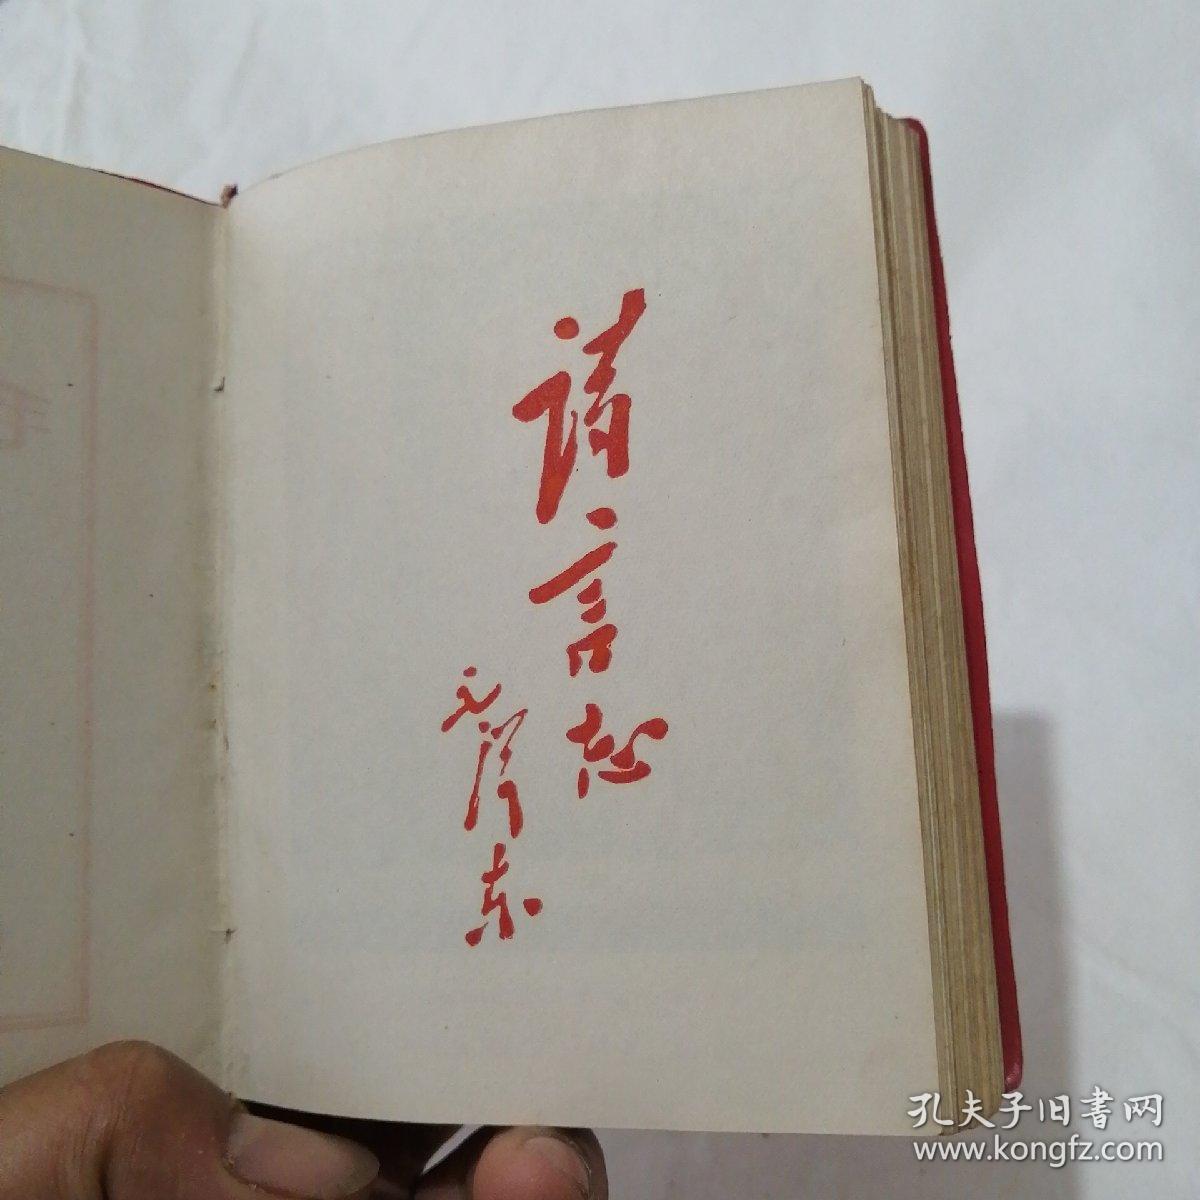 诗言志
毛泽东
孔夫子旧書网
www.kongfz.com